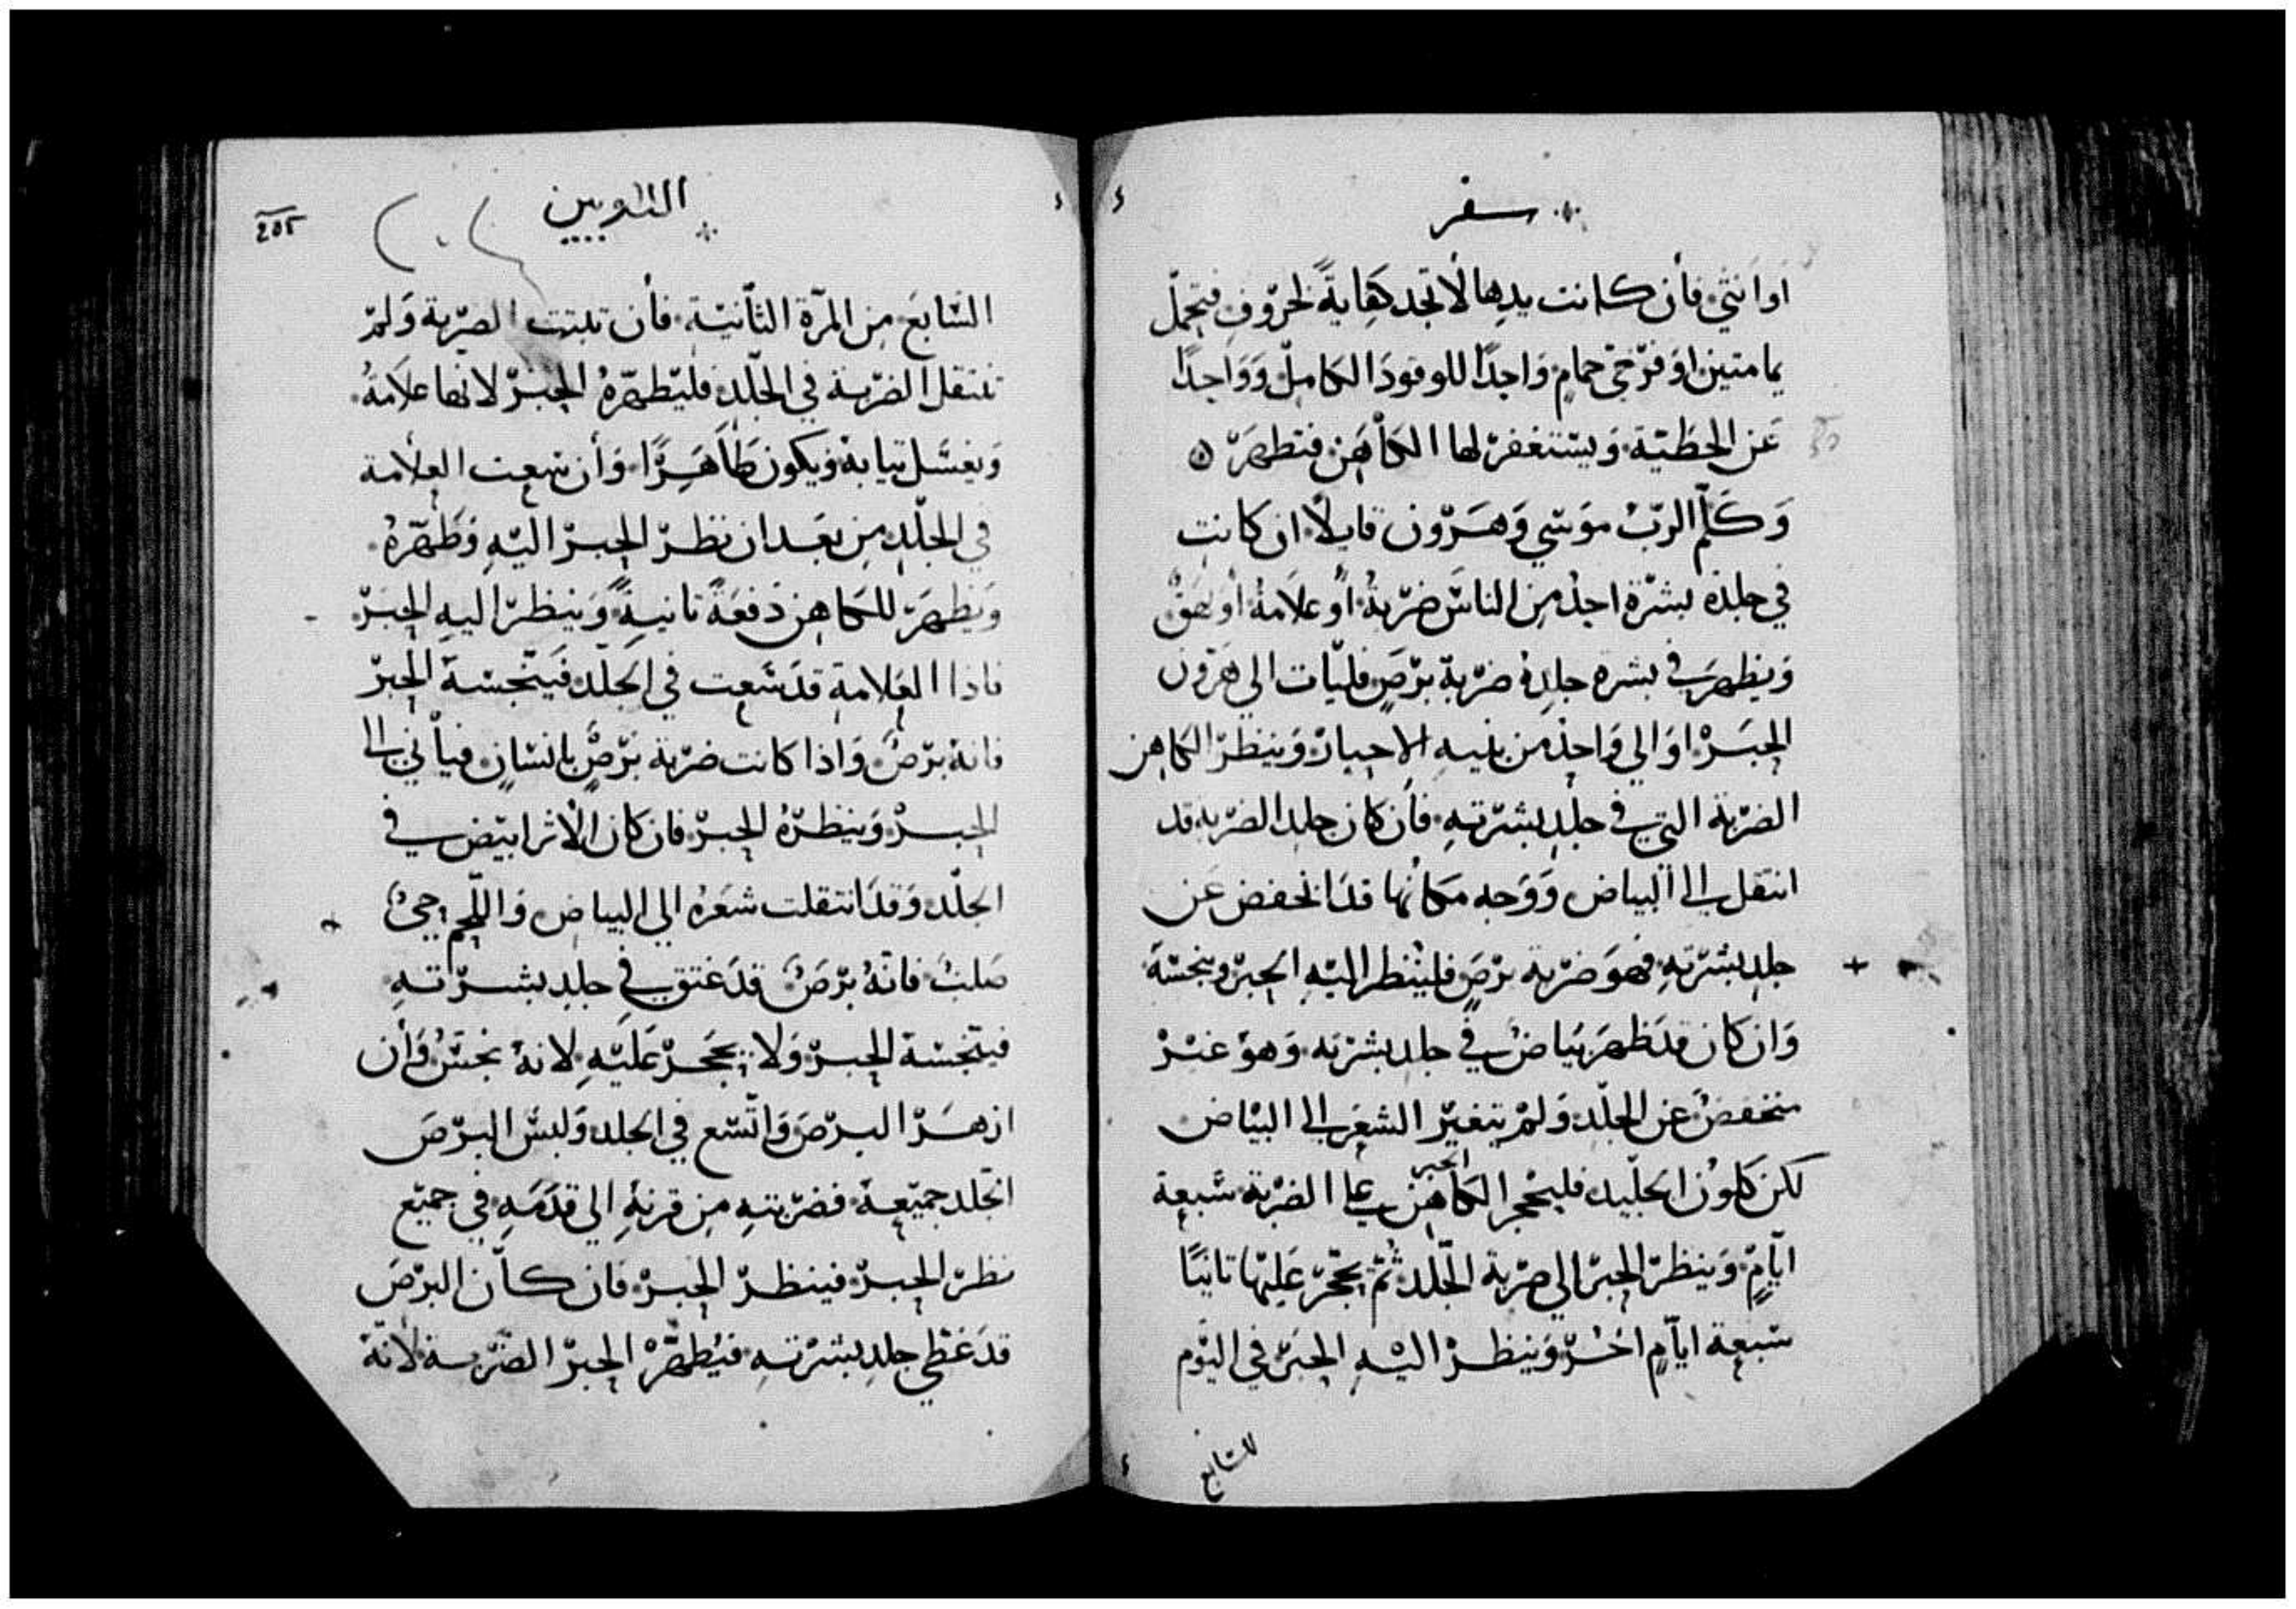 سفر
او انثي فأن كانت يدها لا تجد كفاية لخروف فتحمل
يمامتين او فرخي حمام واحدًا للوقود الكامل وواحدًا
عن الخطية ويستغفر لها الكاهن فتطهر
وكلم الرب موسي وهرون قايلًا ان كانت
في جلدة بشرة احد من الناس ضربة أو علامة أو بهق
ويظهر في بشرة جلده ضربة برص فليات الي هرون
الحبر او الي واحد من بنيه الاحبار وينظر الكاهن
الضربة التي في جلد بشرته فأن كان جلد الضربة قد
انتقل الي البياض ووجه مكانها قد انخفض عن
جلد بشرته فهو ضربة برص فلينظر اليه الحبر وينجسه
وان كان قد ظهر بياض في جلد بشرته وهو غير
منخفض عن الجلد ولم يتغير الشعر الي البياض
لكن كلون الجليد فليحجر الكاهن الحبر علي الضربة سبعة
ايام وينظر الحبر الي ضربة الجلد ثم يحجر عليها ثانيًا
سبعة ايام اخر وينظر اليه الحبر في اليوم
السابع
اللاويين
205
السابع من المرة الثانية فأن تبتت الضربة ولم
تنتقل الضربة في الجلد فليطهره الحبر لانها علامة
ويغسل تيابه ويكون طاهرًا وأن سعت العلامة
في الجلد من بعد ان نظر الحبر اليه وطهره
ويظهر للكاهن دفعة تانية وينظر اليه الحبر
فاذا العلامة قد سعت في الجلد فينجسه الحبر
فانه برص واذا كانت ضربة برص بانسان فيأتي الي
الحبر وينظره الحبر فان كان الاثر ابيض في
الجلد وقد انتقلت شعره الي البياض واللحم حيّ
صلب فانه برص قد عتق في جلد بشرته
فينجسه الحبر ولا يحجر عليه لانه نجس وأن
ازهر البرص واتسع في الجلد ولبس البرص
الجلد جميعه فضربته من قرنه الي قدمه في جميع
نظر الحبر فينظر الحبر فان كان البرص
قد غطي جلد بشرته فيطهر الحبر الضربة لانه